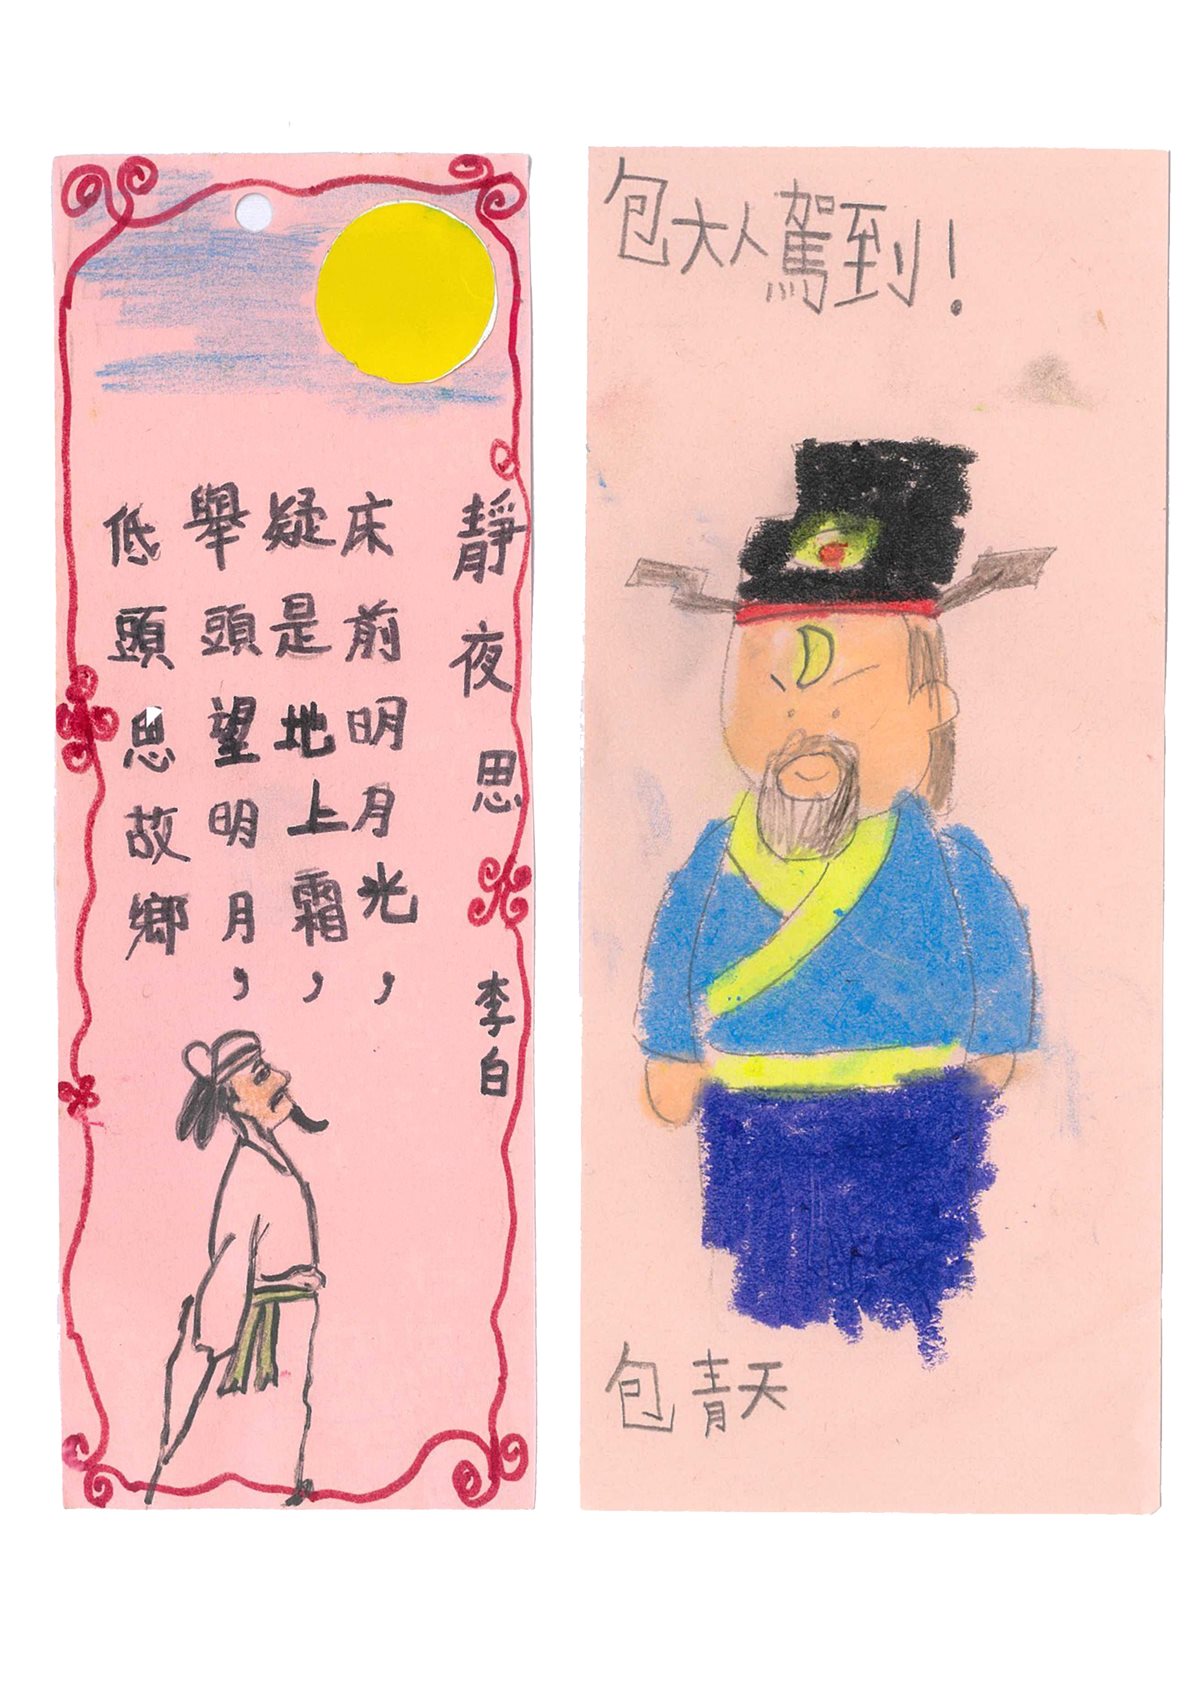 靜夜思 李白
床前明月光，
疑是地上霜，
舉頭望明月，
低頭思故鄉
包大人駕到！
包青天